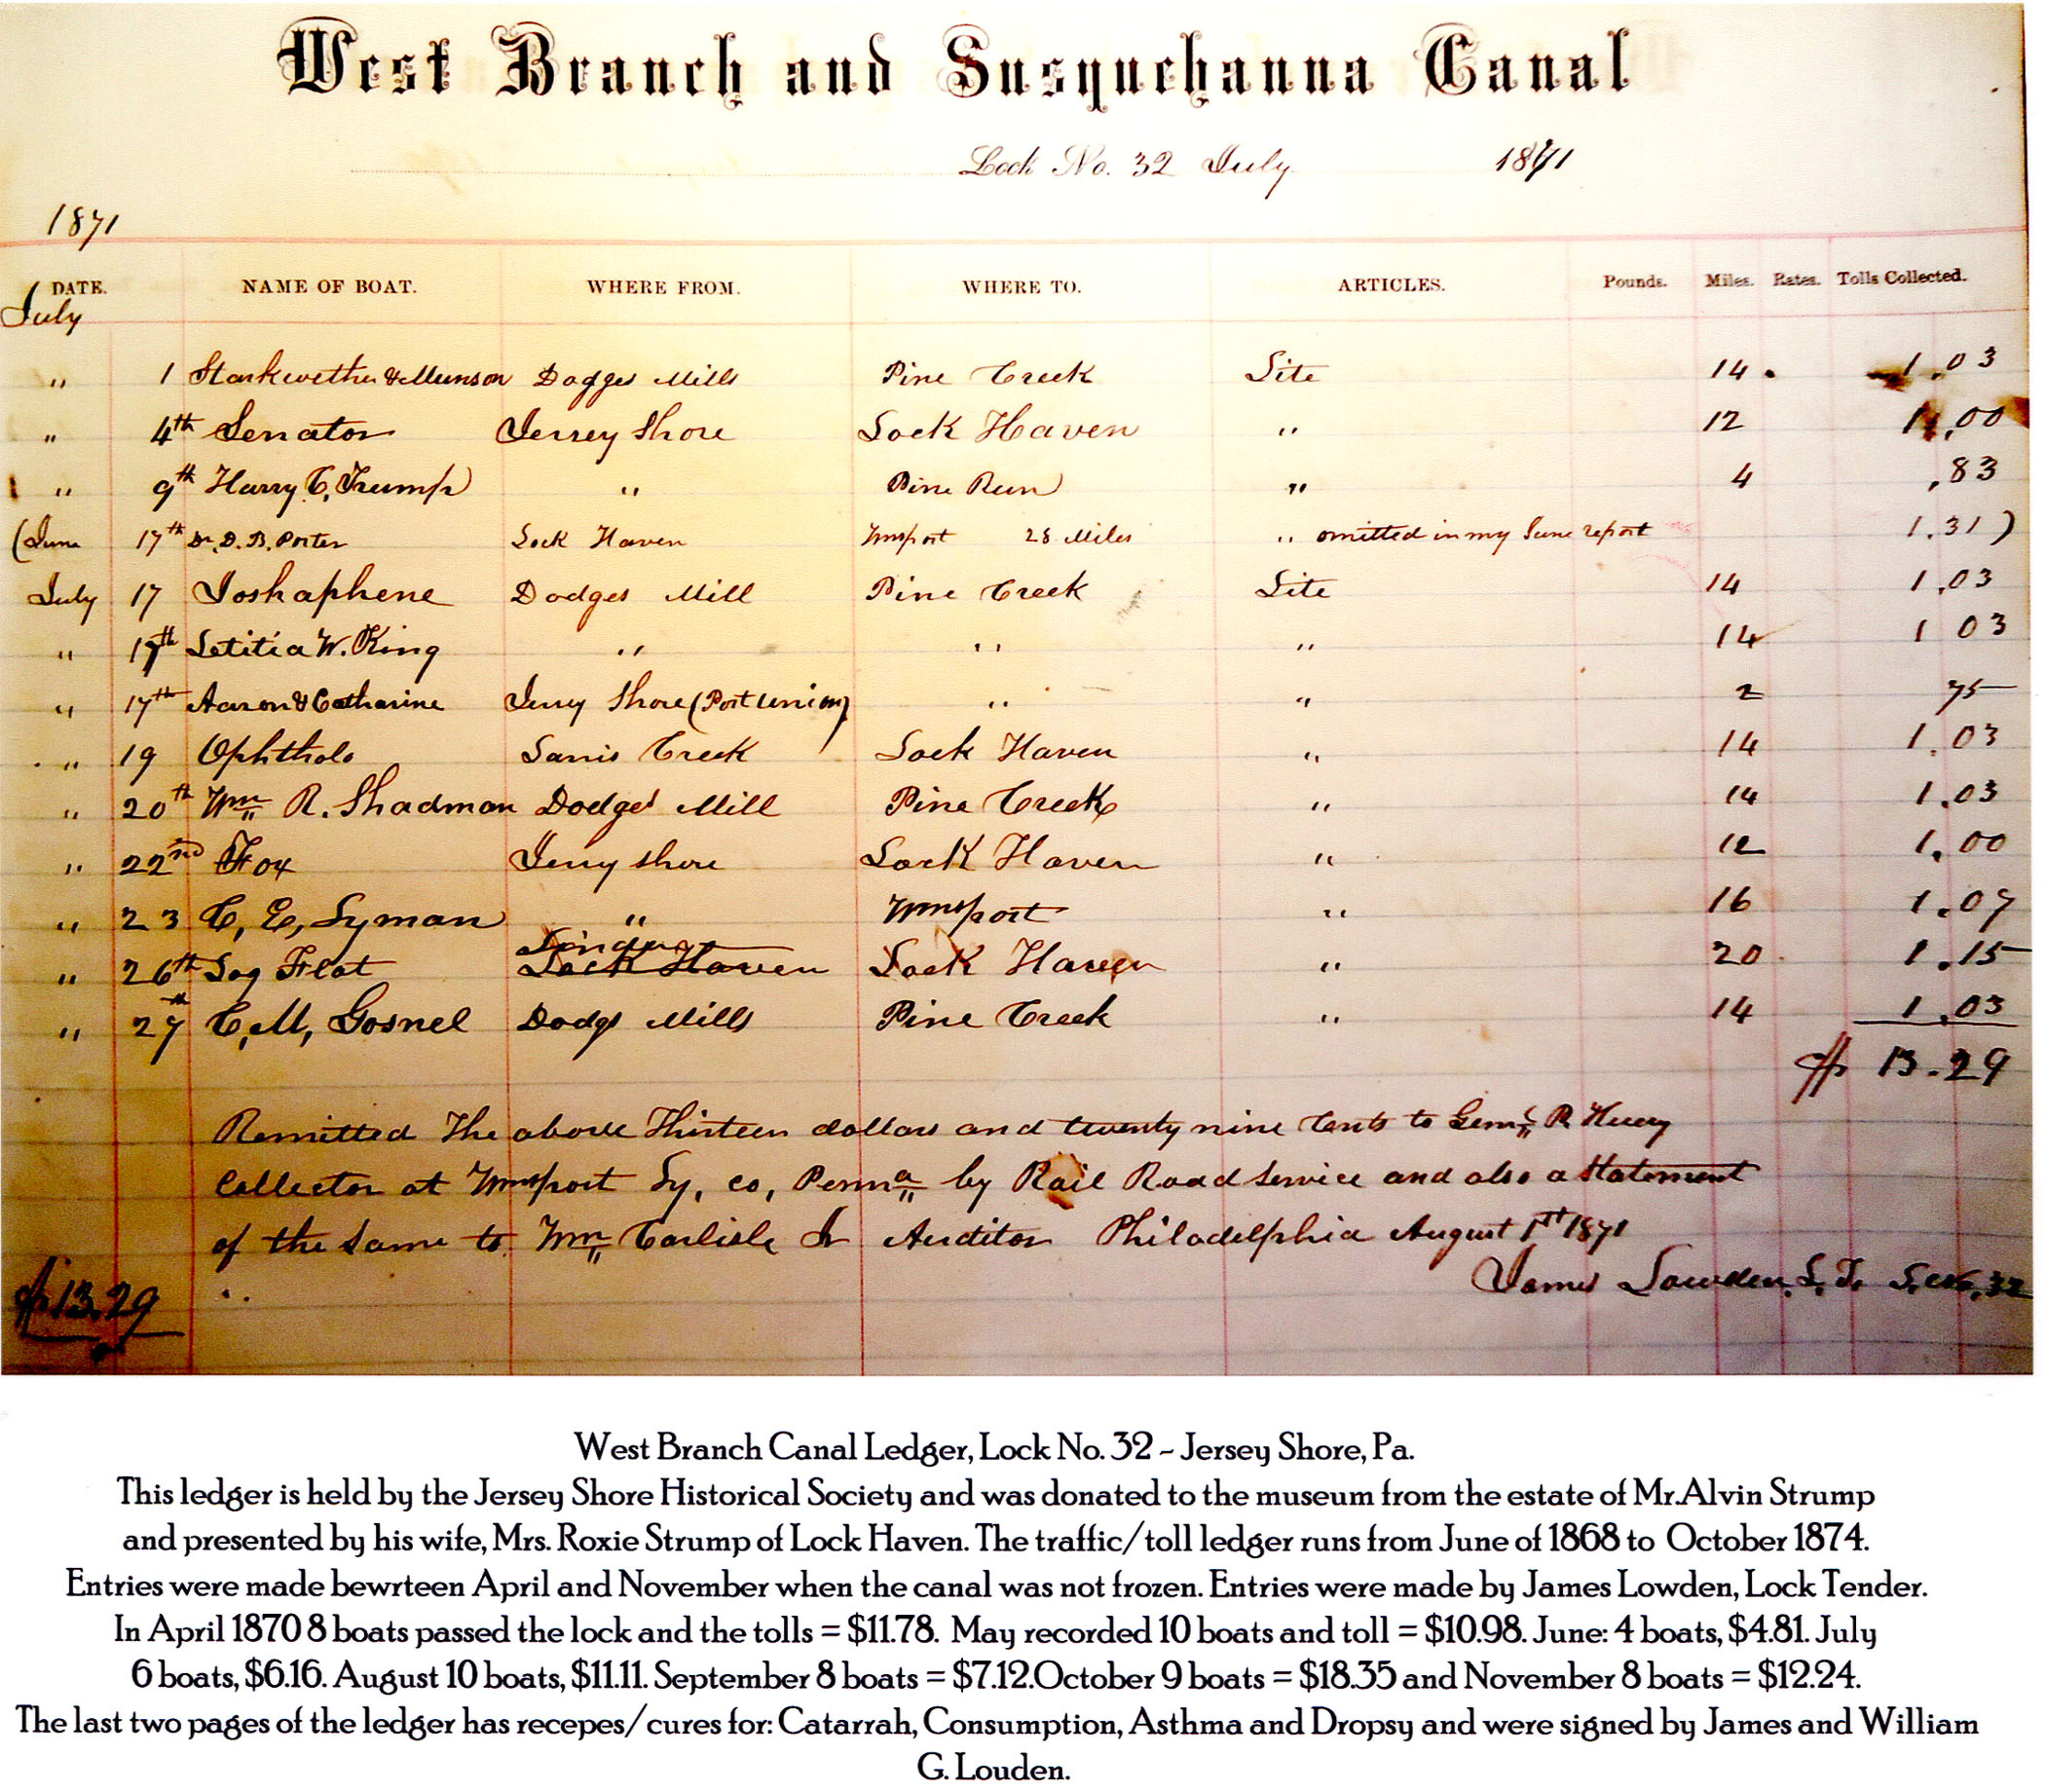 West Branch and Susquehanna Canal
Lock No. 32 July 1871
1871
DATE. NAME OF BOAT. WHERE FROM. WHERE TO. ARTICLES. Pounds. Miles. Rates. Tolls Collected.
July
" 1 Starkwether & Munson Dodges Mills Pine Creek Lite 14 . 1.03
" 4th Senator Jersey Shore Lock Haven " 12 1.00
" 9th Harry C, Trump " Pine Run " 4 .83
(June 17th Dr. D. B. Porter Lock Haven Wmsport 28 Miles " omitted in my June report 1.31)
July 17 Joshaphene Dodges Mill Pine Creek Lite 14 1.03
" 17th Letitia W. King " " " 14 1 03
" 17th Aaron & Catharine Jersy Shore (Port Union) " " 2 75
" 19 Ophthols Lanis Creek Lock Haven " 14 1.03
" 20th Wm R. Shadman Dodges Mill Pine Creek " 14 1.03
" 22nd Fox Jersy Shore Lock Haven " 12 1.00
" 23 C, E, Lyman " Wmsport " 16 1.07
" 26th Log Flat Lock Haven Lock Haven " 20 1.15
" 27th C, M, Gosnel Dodgs Mills Pine Creek " 14 1.03
$ 13.29
Remitted The above Thirteen dollars and twenty nine Cents to R
Collector at Wmsport Ly, co, Penna by Rail Road Service and also a Statement
of the Same to Wm Carlisle Jr Auditor Philadelphia August 1st 1871
James Lowden. L. T. 32
$13.29 "
West Branch Canal Ledger, Lock No. 32 ~ Jersey Shore, Pa.
This ledger is held by the Jersey Shore Historical Society and was donated to the museum from the estate of Mr.Alvin Strump
and presented by his wife, Mrs. Roxie Strump of Lock Haven. The traffic/toll ledger runs from June of 1868 to October 1874.
Entries were made bewrteen April and November when the canal was not frozen. Entries were made by James Lowden, Lock Tender.
In April 1870 8 boats passed the lock and the tolls = $11.78. May recorded 10 boats and toll = $10.98. June: 4 boats, $4.81. July
6 boats, $6.16. August 10 boats, $11.11. September 8 boats = $7.12.October 9 boats = $18.35 and November 8 boats = $12.24.
The last two pages of the ledger has recepes/cures for: Catarrah, Consumption, Asthma and Dropsy and were signed by James and William
G. Louden.